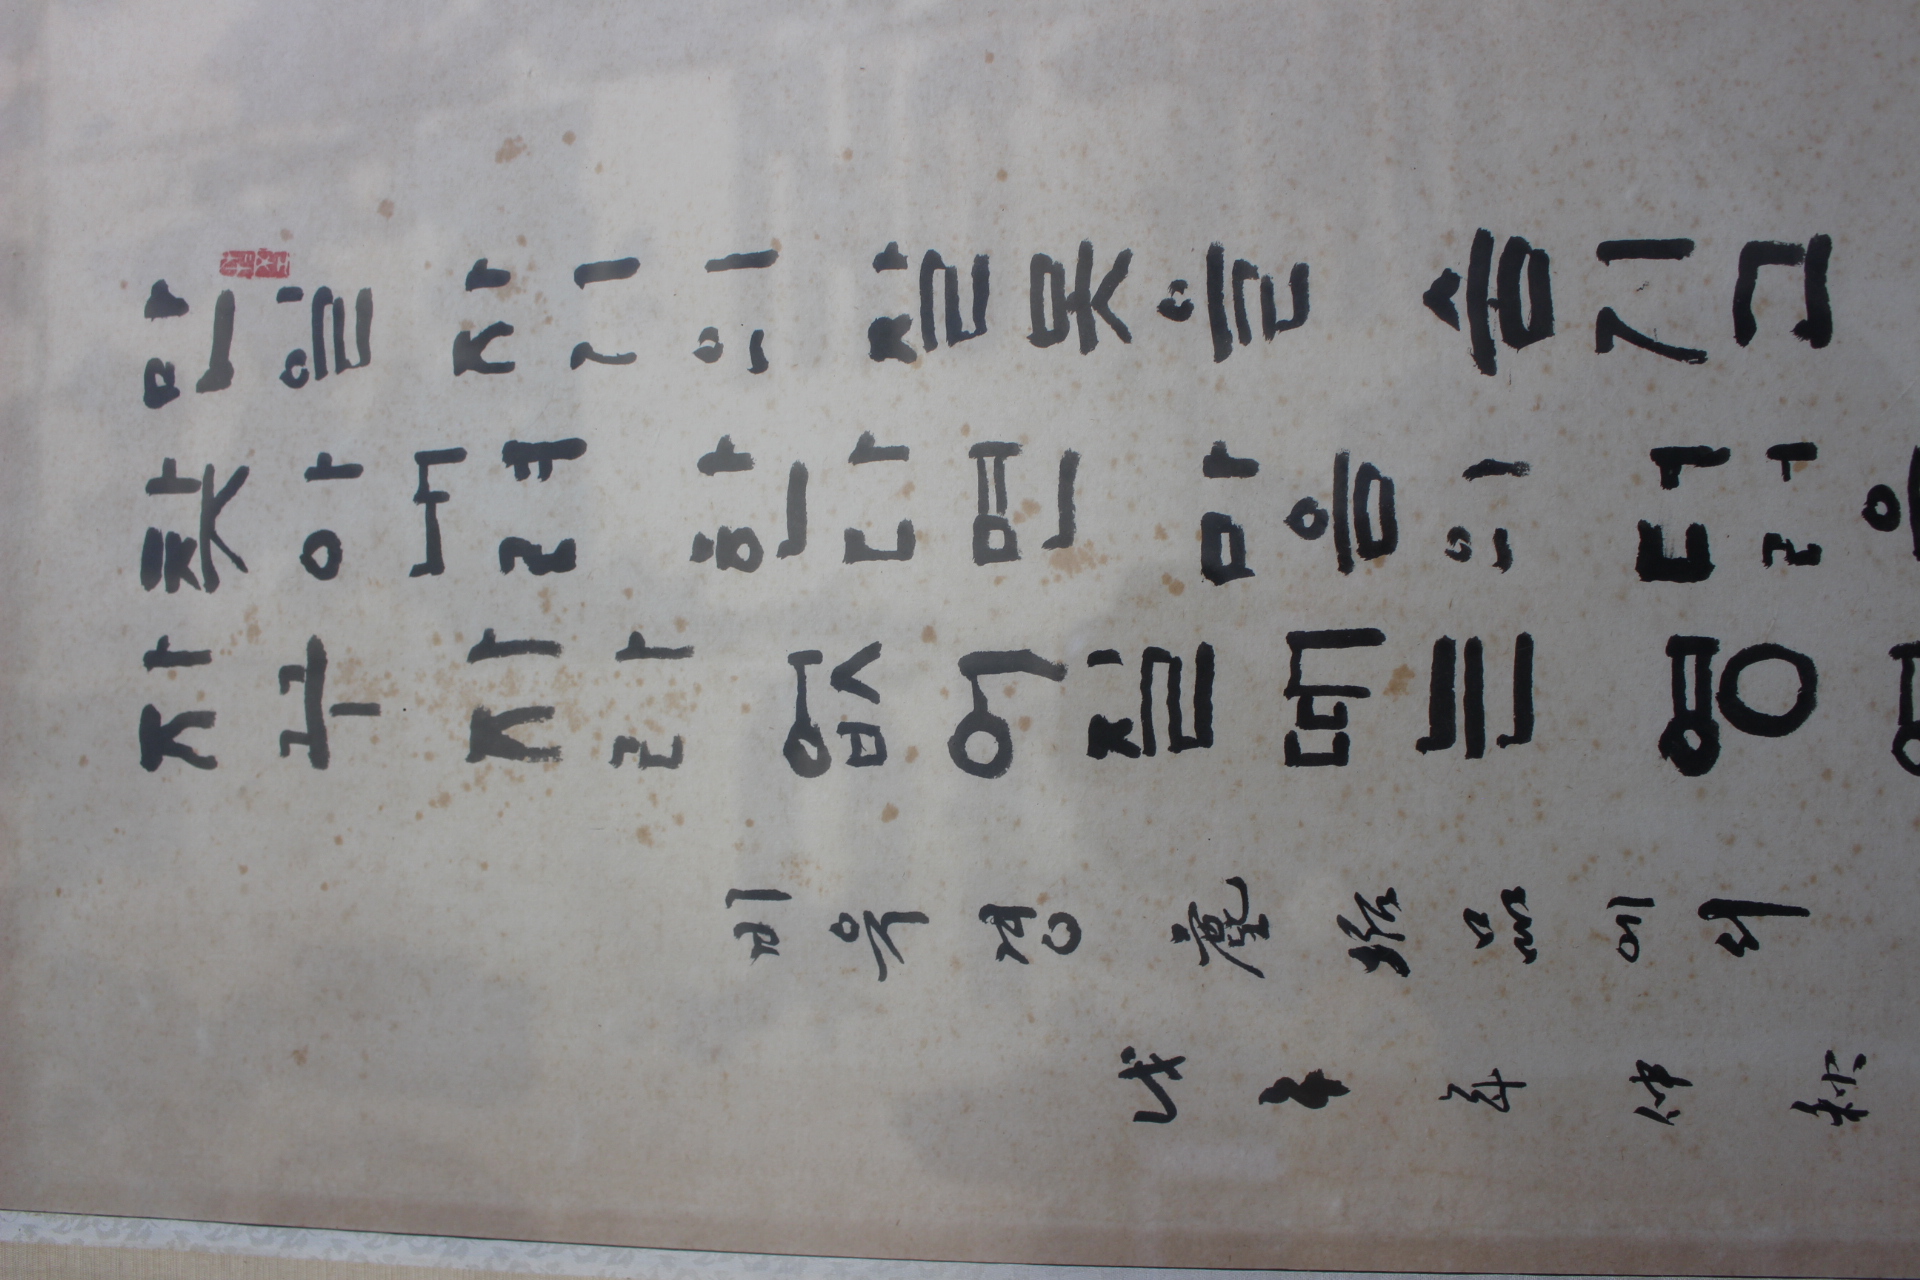 만일 자기의 잘못을 숨기고
찾아내려 한다면 마음의 더러
자꾸 자라 없어질 때는 영
비유경 塵垢品에서
戊午年 仲秋